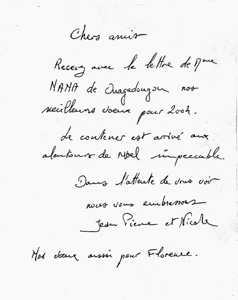 Chers amis
Recevez avec la lettre de Mme
NANA de Ouagadougou nos
meilleurs voeux pour 2004.
Le container est arrivé aux
alentours de Noël impeccable.
Dans l'attente de vous voir
nous vous embrassons
Jean Pierre et Nicole
Nos voeux aussi pour Florence.